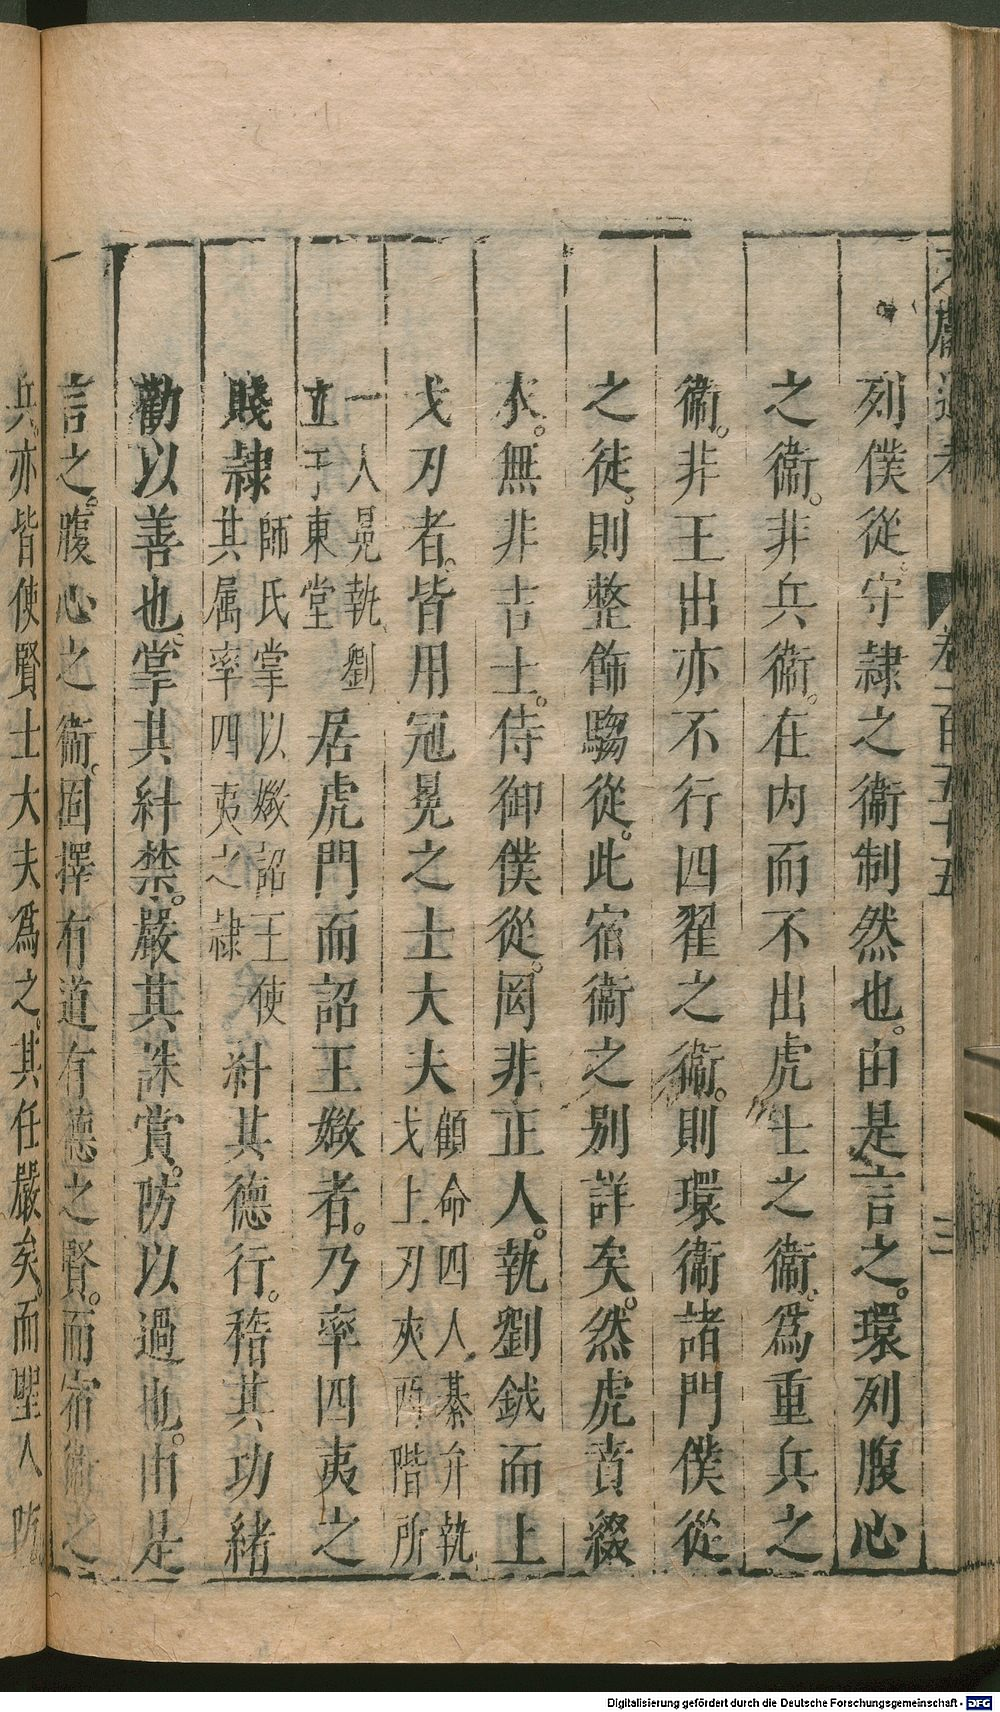 文獻通考 卷一百五十五 三
列僕從守隷之衞制然也由是言之環列腹心
之衞非兵衞在内而不出虎士之衞爲重兵之
衞非王出亦不行四翟之衞則環衞諸門僕從
之徒則整飾騶從此宿衞之别詳矣然虎賁綴
衣無非吉士侍御僕從罔非正人執劉鉞而上
戈刃者皆用冠冕之士大夫顧命四人綦弁執戈上刃夾兩階所
一人冕執劉立于東堂居虎門而詔王媺者乃率四夷之
賤隷師氏掌以媺詔王使其属率四夷之隷糾其德行稽其功緒
勸以善也掌其糾禁嚴其誅賞防以過也由是
言之腹心之衞固擇有道有德之賢而宿衞之
兵亦皆使賢士大夫爲之其任嚴矣而聖人
Digitalisierung gefördert durch die Deutsche Forschungsgemeinschaft - DFG